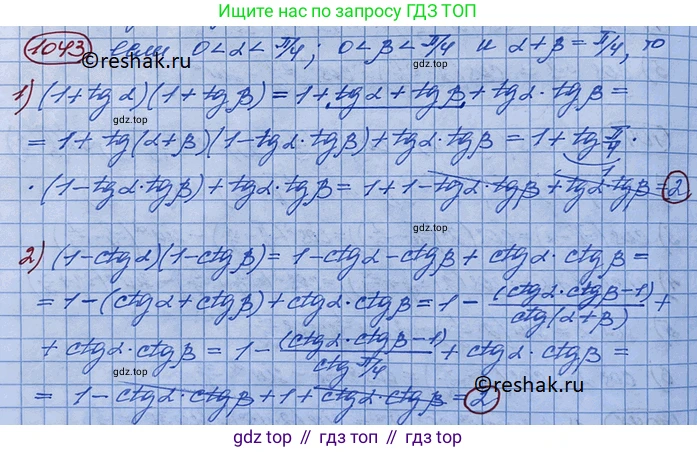 Ищите нас по запросу ГДЗ ТОП
1043 если 0<α<π/4; 0<β<π/4 и α+β=π/4, то
©reshak.ru
1) (1+tgα)(1+tgβ)=1+tgα+tgβ+tgα·tgβ=
=1+tg(α+β)(1-tgα·tgβ)+tgα·tgβ=1+tg π/4·
1
·(1-tgα·tgβ)+tgα·tgβ=1+1-tgα·tgβ+tgα·tgβ=2
2) (1-ctgα)(1-ctgβ)=1-ctgα-ctgβ+ctgα·ctgβ=
=1-(ctgα+ctgβ)+ctgα·ctgβ=1-(ctgα·ctgβ-1)/ctg(α+β)+
+ctgα·ctgβ=1-(ctgα·ctgβ-1)/ctg π/4+ctgα·ctgβ=
=1-ctgα·ctgβ+1+ctgα·ctgβ=2
©reshak.ru
gdz.top // гдз.топ // gdz.top // гдз.топ